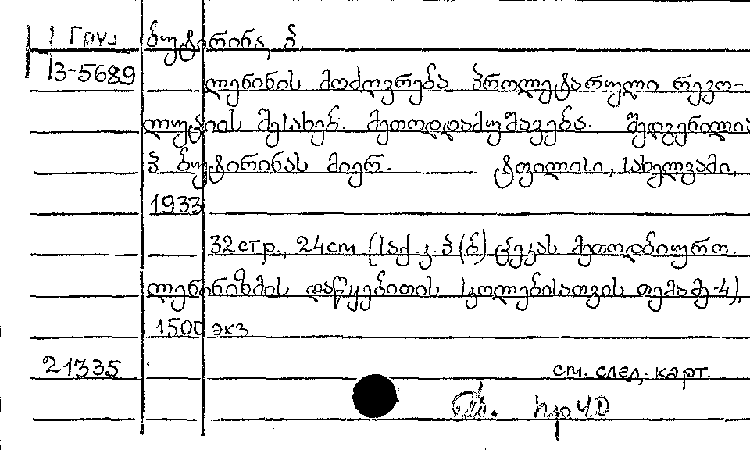 1 Груз ბუტირინა, პ.
3-5689
ლენინის მოძღვრება პროლეტარული რევო-
ლუციის შესახებ. მეთოდდამუშავება. შედგენილია
პ. ბუტირინას მიერ. ტფილისი, სახელგამი,
1933
32 стр., 24 см (საქ. კ.პ(ბ) ცეკას მეთოდბიურო.
ლენინიზმის დაწყებითის სკოლებისათვის თემა მე-4).
1500 экз
21335 см. след. карт